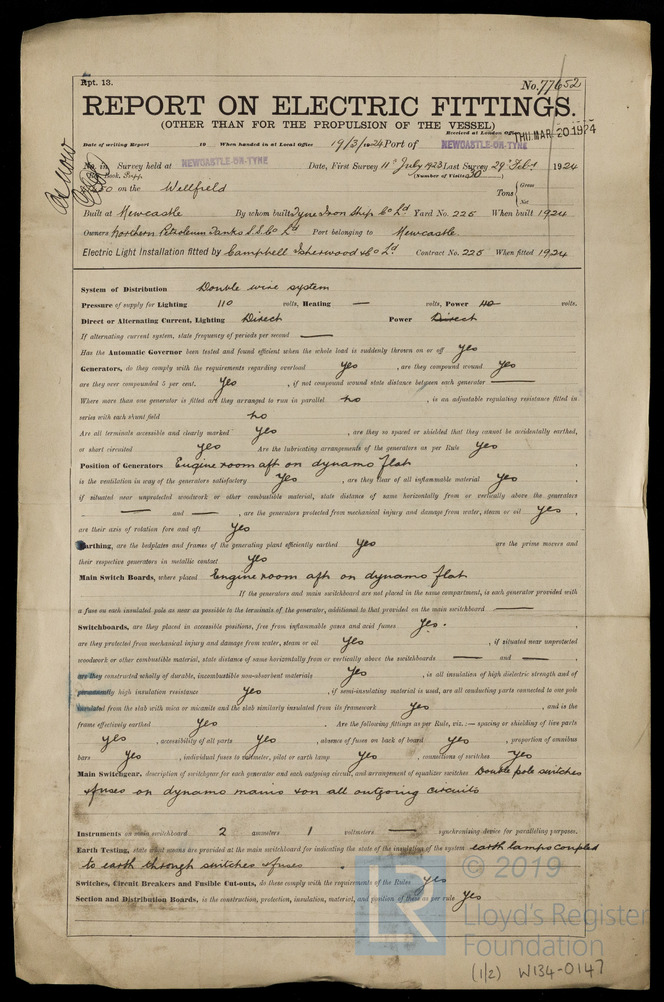 Rpt. 13.
No. 77652
REPORT ON ELECTRIC FITTINGS.
(OTHER THAN FOR THE PROPULSION OF THE VESSEL)
Received at London Office THU. MAR. 20. 1924
Date of writing Report 19 When handed in at Local Office 19/3/1924 Port of NEWCASTLE-ON-TYNE
No. in Survey held at NEWCASTLE-ON-TYNE Date, First Survey 11th July 1923 Last Survey 29th Feb. 1924
Reg. Book. (Number of Visits 30)
on the Wellfield Tons { Gross
Net
Built at Newcastle By whom built Tyne Iron Ship Co Ld Yard No. 225 When built 1924
Owners Northern Petroleum Tanks S.S. Co Ld Port belonging to Newcastle
Electric Light Installation fitted by Campbell Isherwood & Co Ld Contract No. 225 When fitted 1924
System of Distribution Double wire system
Pressure of supply for Lighting 110 volts, Heating — volts, Power 110 volts.
Direct or Alternating Current, Lighting Direct Power Direct
If alternating current system, state frequency of periods per second —
Has the Automatic Governor been tested and found efficient when the whole load is suddenly thrown on or off Yes
Generators, do they comply with the requirements regarding overload Yes , are they compound wound Yes
are they over compounded 5 per cent. Yes , if not compound wound state distance between each generator —
Where more than one generator is fitted are they arranged to run in parallel No , is an adjustable regulating resistance fitted in
series with each shunt field No
Are all terminals accessible and clearly marked Yes , are they so spaced or shielded that they cannot be accidentally earthed,
or short circuited Yes Are the lubricating arrangements of the generators as per Rule Yes
Position of Generators Engine room aft on dynamo flat
is the ventilation in way of the generators satisfactory Yes , are they clear of all inflammable material Yes
if situated near unprotected woodwork or other combustible material, state distance of same horizontally from or vertically above the generators
— and — , are the generators protected from mechanical injury and damage from water, steam or oil Yes ,
are their axis of rotation fore and aft Yes
Earthing, are the bedplates and frames of the generating plant efficiently earthed Yes are the prime movers and
their respective generators in metallic contact Yes
Main Switch Boards, where placed Engine room aft on dynamo flat
If the generators and main switchboard are not placed in the same compartment, is each generator provided with
a fuse on each insulated pole as near as possible to the terminals of the generator, additional to that provided on the main switchboard —
Switchboards, are they placed in accessible positions, free from inflammable gases and acid fumes Yes.
are they protected from mechanical injury and damage from water, steam or oil Yes , if situated near unprotected
woodwork or other combustible material, state distance of same horizontally from or vertically above the switchboards — and —
are they constructed wholly of durable, incombustible non-absorbent materials Yes , is all insulation of high dielectric strength and of
permanently high insulation resistance Yes , if semi-insulating material is used, are all conducting parts connected to one pole
insulated from the slab with mica or micanite and the slab similarly insulated from its framework Yes , and is the
frame effectively earthed Yes . Are the following fittings as per Rule, viz.:— spacing or shielding of live parts
Yes , accessibility of all parts Yes , absence of fuses on back of board Yes , proportion of omnibus
bars Yes , individual fuses to voltmeter, pilot or earth lamp Yes , connections of switches Yes
Main Switchgear, description of switchgear for each generator and each outgoing circuit, and arrangement of equalizer switches Double pole switches
& fuses on dynamo mains & on all outgoing circuits
Instruments on main switchboard 2 ammeters 1 voltmeters — synchronising device for paralleling purposes.
Earth Testing, state what means are provided at the main switchboard for indicating the state of the insulation of the system earth lamps coupled
to earth through switches & fuses .
Switches, Circuit Breakers and Fusible Cut-outs, do these comply with the requirements of the Rules Yes
Section and Distribution Boards, is the construction, protection, insulation, material, and position of these as per rule Yes
© 2019
LR
Lloyd's Register
Foundation
(1/2) W134-0147